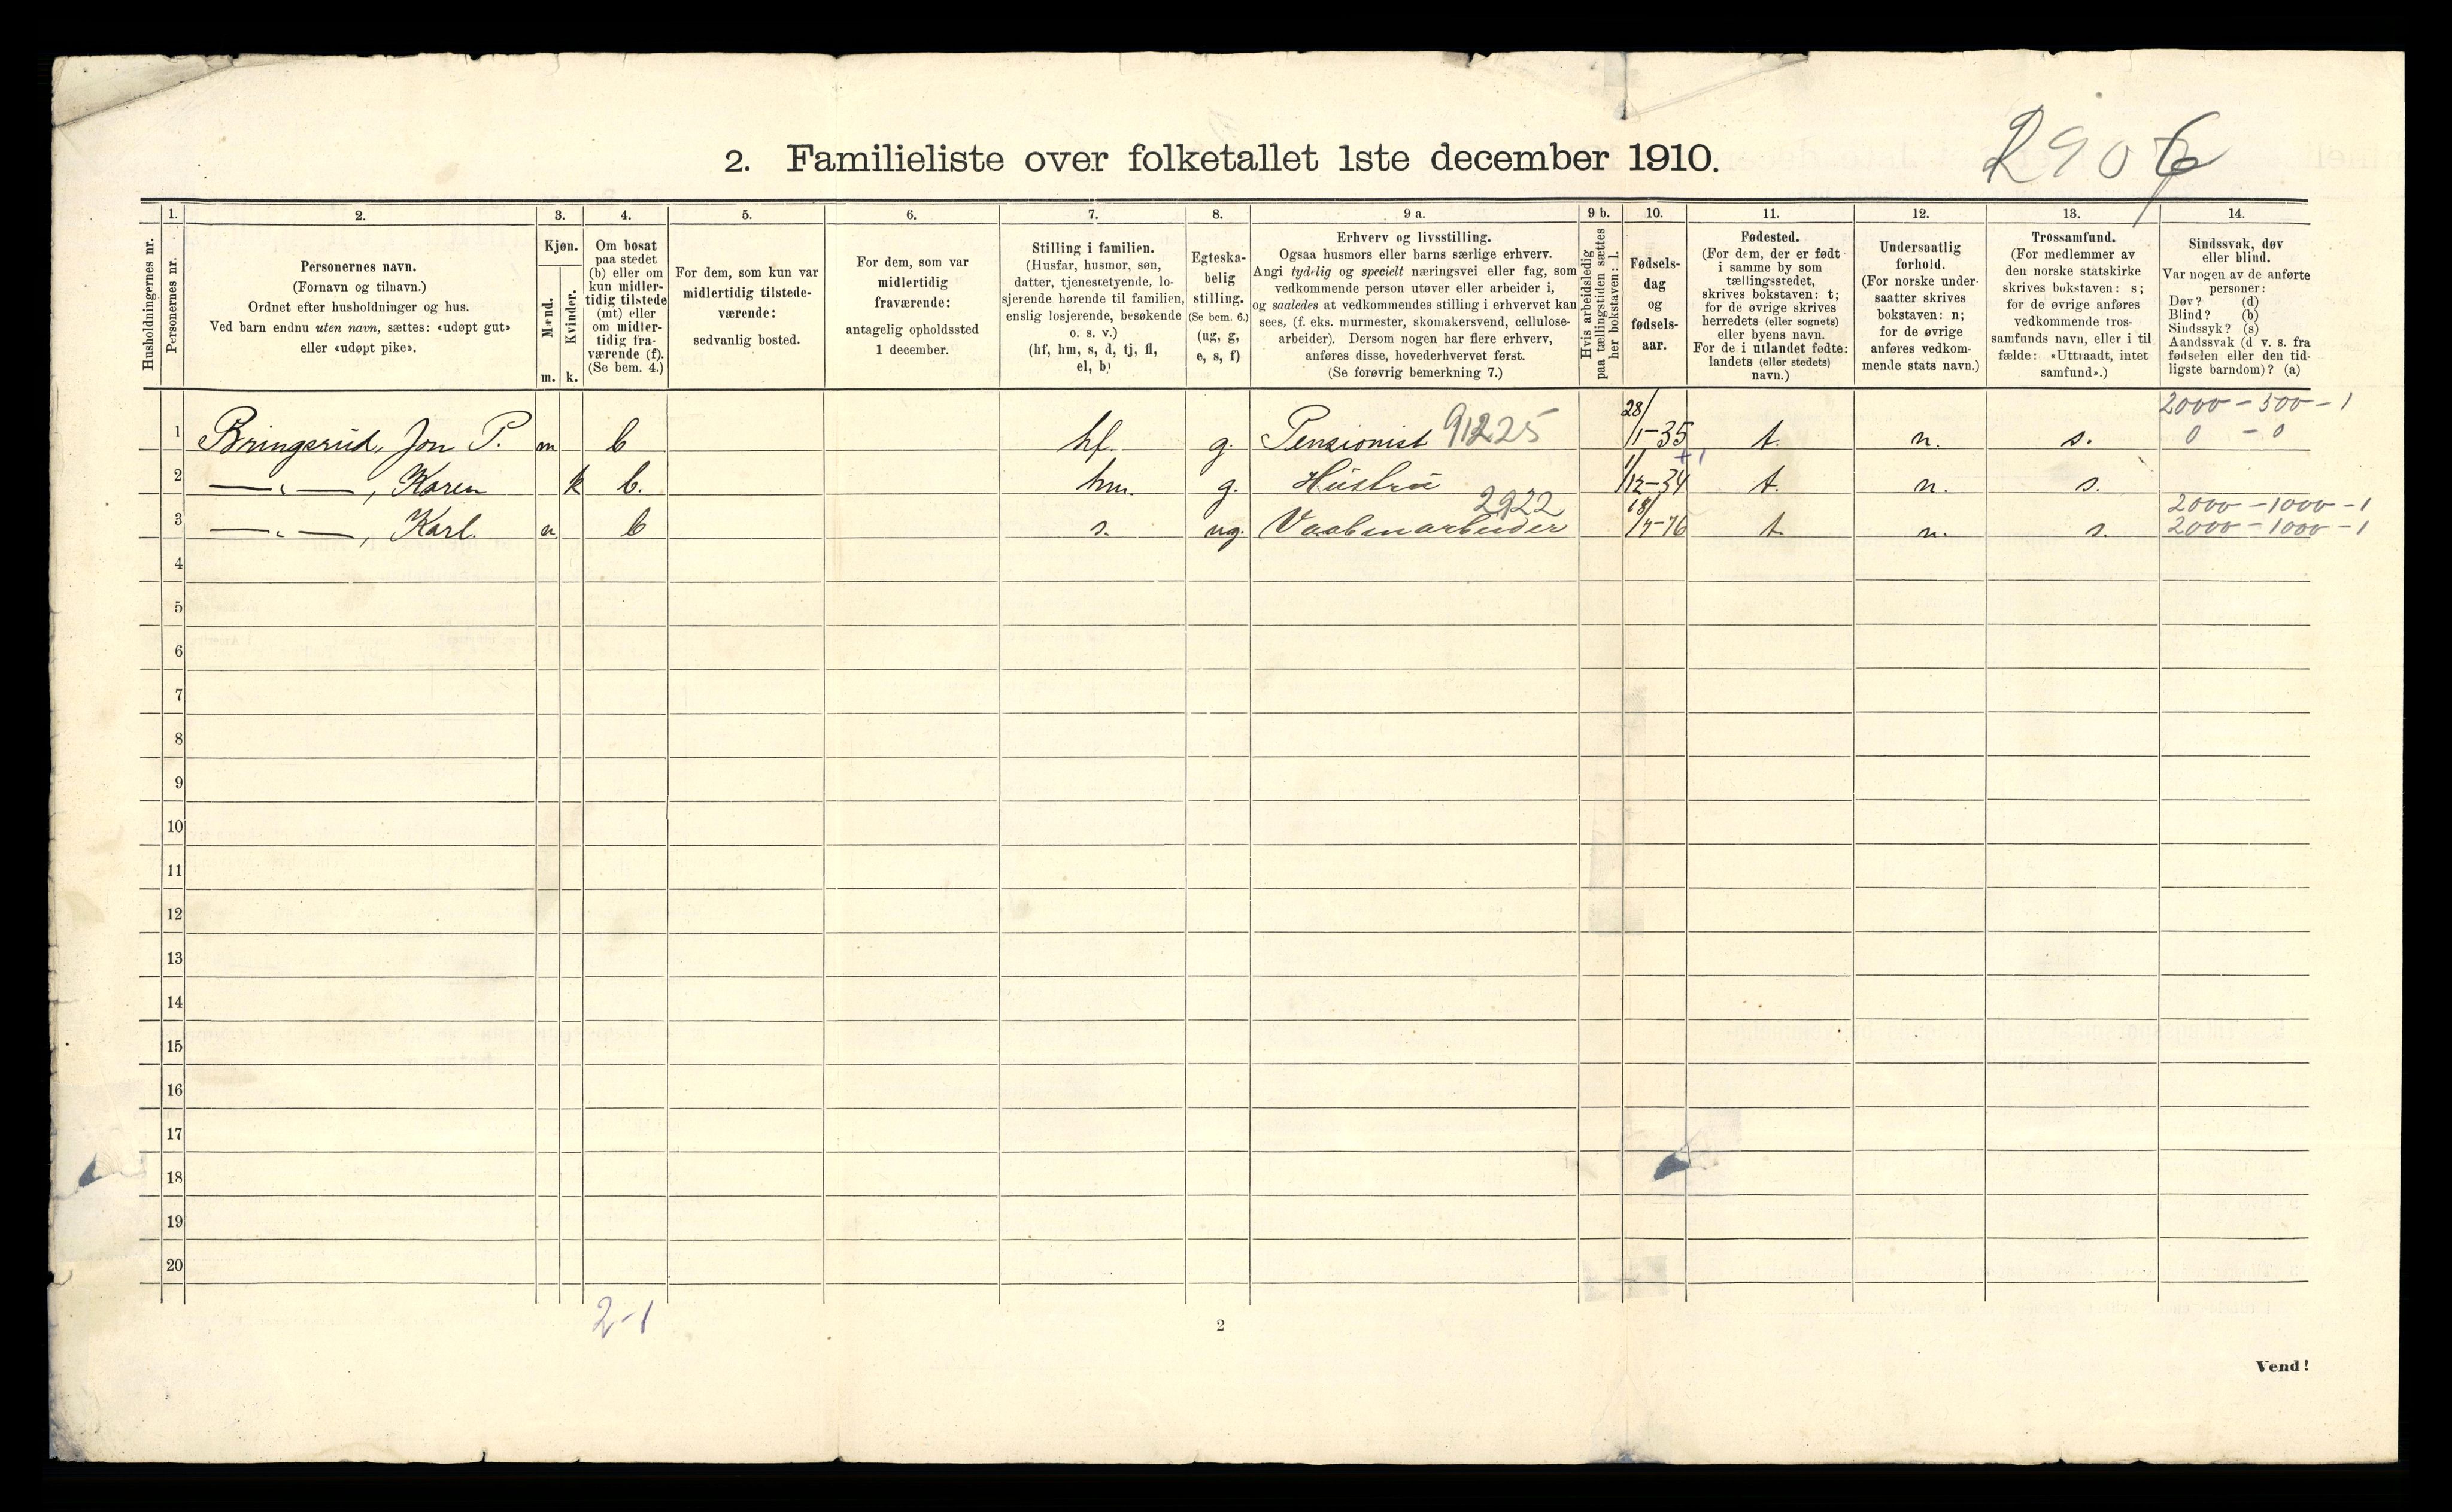 2906
2. Familieliste over folketallet 1ste december 1910.
Husholdningernes nr.
1.
Personernes nr.
2.
Personernes navn.
(Fornavn og tilnavn.)
Ordnet efter husholdninger og hus.
Ved barn endnu uten navn, sættes: «udøpt gut»
eller «udøpt pike».
3.
Kjøn.
Mænd.
Kvinder.
m. k.
4.
Om bosat
paa stedet
(b) eller om
kun midler-
tidig tilstede
(mt) eller
om midler-
tidig fra-
værende (f).
(Se bem. 4.)
5.
For dem, som kun var
midlertidig tilstede-
værende:
sedvanlig bosted.
6.
For dem, som var
midlertidig
fraværende:
antagelig opholdssted
1 december.
7.
Stilling i familien.
(Husfar, husmor, søn,
datter, tjenestetyende, lo-
sjerende hørende til familien,
enslig losjerende, besøkende
o. s. v.)
(hf, hm, s, d, tj, fl,
el, b)
8.
Egteska-
belig
stilling.
(Se bem. 6.)
(ug, g,
e, s, f)
9 a.
Erhverv og livsstilling.
Ogsaa husmors eller barns særlige erhverv.
Angi tydelig og specielt næringsvei eller fag, som
vedkommende person utøver eller arbeider i,
og saaledes at vedkommendes stilling i erhvervet kan
sees, (f. eks. murmester, skomakersvend, cellulose-
arbeider). Dersom nogen har flere erhverv,
anføres disse, hovederhvervet først.
(Se forøvrig bemerkning 7.)
9 b.
Hvis arbeidsledig
paa tællingstiden sættes
her bokstaven: l.
10.
Fødsels-
dag
og
fødsels-
aar.
11.
Fødested.
(For dem, der er født
i samme by som
tællingsstedet,
skrives bokstaven: t;
for de øvrige skrives
herredets (eller sognets)
eller byens navn.
For de i utlandet fødte:
landets (eller stedets)
navn.)
12.
Undersaatlig
forhold.
(For norske under-
saatter skrives
bokstaven: n;
for de øvrige
anføres vedkom-
mende stats navn.)
13.
Trossamfund.
(For medlemmer av
den norske statskirke
skrives bokstaven: s;
for de øvrige anføres
vedkommende tros-
samfunds navn, eller i til
fælde: «Uttraadt, intet
samfund».)
14.
Sindssvak, døv
eller blind.
Var nogen av de anførte
personer:
Døv? (d)
Blind? (b)
Sindssyk? (s)
Aandssvak (d v. s. fra
fødselen eller den tid-
ligste barndom)? (a)
1 Bringsrud, Jon P. m b hf. g. Pensionist 91225 28/1-35 t. n. s. 2000 - 500 - 1
0 - 0
2 —„—, Karen k b. hm. g. Hustru 1/12-34 t. n. s.
3 —„—, Karl. m b s. ug. Vaabenarbeider 2922 18/7-76 t. n. s. 2000 - 1000 - 1
2000 - 1000 - 1
4
5
6
7
8
9
10
11
12
13
14
15
16
17
18
19
20
2-1
2
Vend!